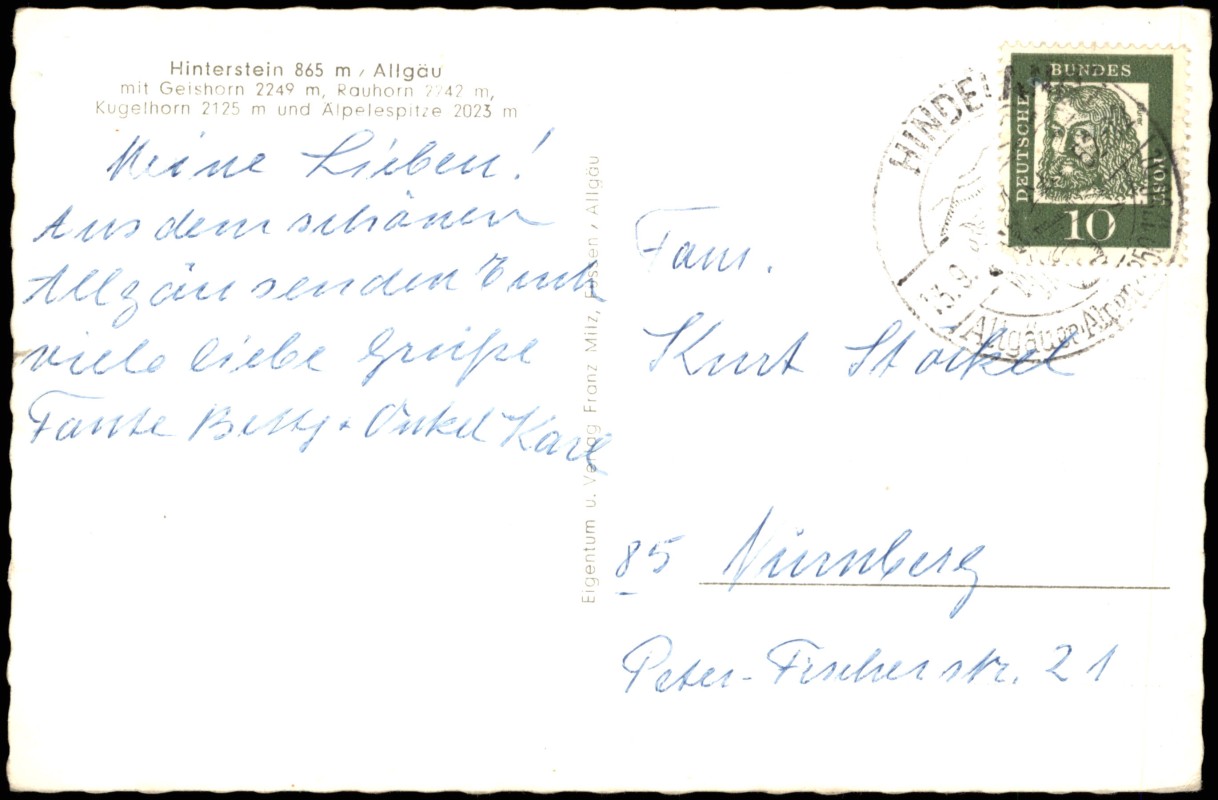 Hinterstein 865 m / Allgäu
mit Geishorn 2249 m, Rauhorn 2242 m,
Kugelhorn 2125 m und Älpelespitze 2023 m
Meine Lieben!
Aus dem schönen
Allgäu senden Euch
viele liebe Grüße
Tante Betty + Onkel Karl
Eigentum u. Verlag Franz Milz, Füssen / Allgäu
DEUTSCHE BUNDESPOST
10
HINDELANG
13.9.
Allgäuer Alpen
Fam.
Kurt Stöckel
85 Nürnberg
Peter-Fischerstr. 21